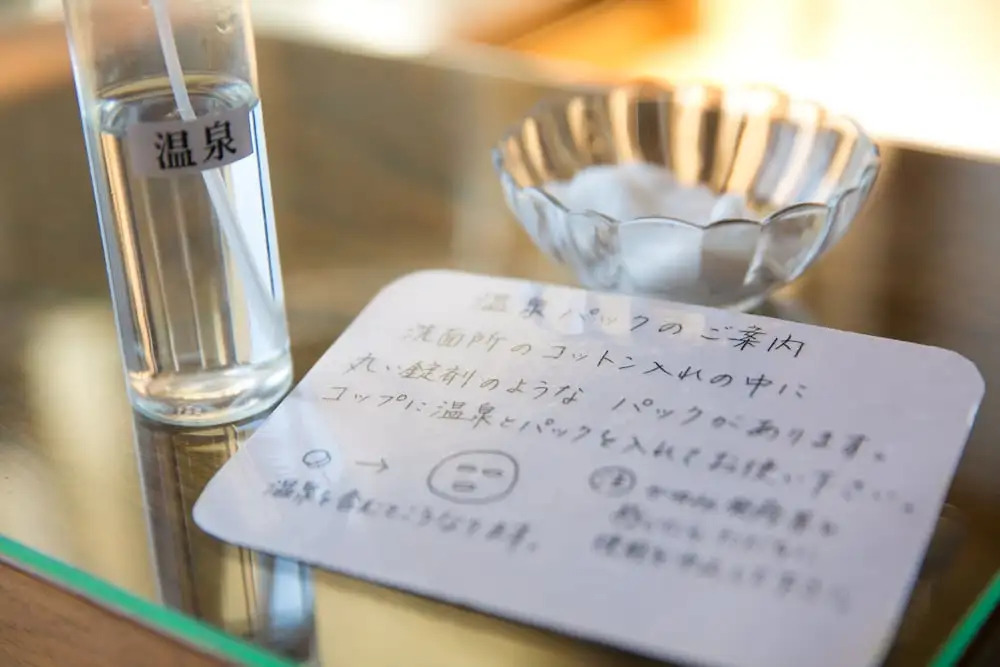 温泉
温泉パックのご案内
洗面所のコットン入れの中に
丸い錠剤のような パックがあります。
コップに温泉とパックを入れてお使い下さい。
温泉を含むとこうなります。
注